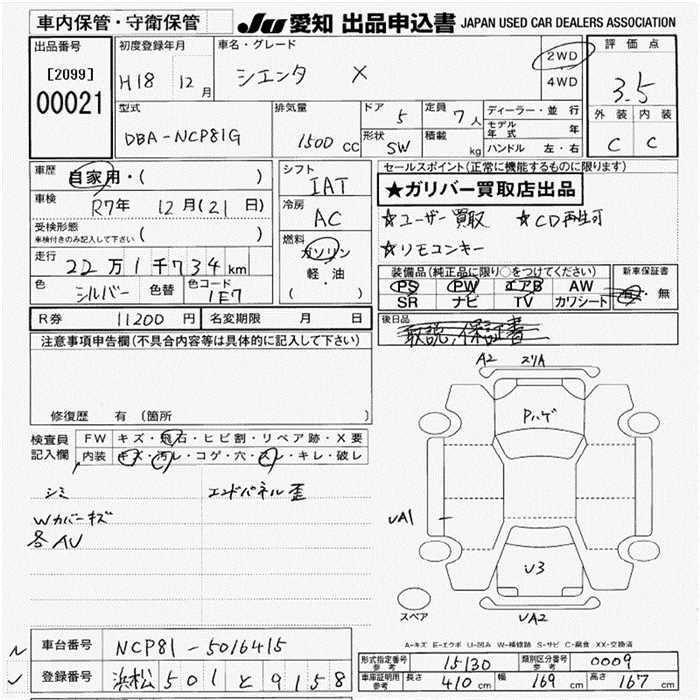 車内保管・守衛保管
JU 愛知 出品申込書 JAPAN USED CAR DEALERS ASSOCIATION
出品番号 初度登録年月 車名・グレード 2WD 評価点
[2099] H18 12月 シエンタ X 4WD 3.5
00021
型式 排気量 ドア 5 定員 7人 ディーラー・並行 外装 内装
DBA-NCP81G 1500cc 形状 SW 積載 kg モデル年式 年 C C
ハンドル 左・右
車歴 自家用・( ) シフト セールスポイント(正常に機能するものに限ります)
IAT ★ガリバー買取店出品
車検 R7年 12月(21日) 冷房 ☆ユーザー買取 ☆CD再生可
受検形態 ( ) AC ☆リモコンキー
車検付きのみ記入して下さい
走行 22万1千734km 燃料 ガソリン 装備品(純正品に限り○をつけてください) 新車保証書
軽・油 PS PW エアB AW 有・無
色 シルバー 色替 色コード 1E7 ( ) SR ナビ TV カワシート
R券 11200円 名変期限 月 日 後日品
取説、保証書
注意事項申告欄(不具合内容等は具体的に記入して下さい)
修復歴 有(箇所
A2 スリA
Pハゲ
検査員 FW キズ・飛石・ヒビ割・リペア跡・X要
記入欄 内装 キズ・汚レ・コゲ・穴・スレ・キレ・破レ
シミ エンドパネル歪
Wカバーキズ
各AU
UA1
U3
スペア
UA2
A-キズ E-エクボ U-凹み W-補修跡 S-サビ C-腐食 XX-交換済
車台番号 NCP81-5016415
登録番号 浜松501と9158
形式指定番号 参考 15130 類別区分番号 参考 0009
車庫証明用 参考 長さ 410cm 幅 169cm 高さ 167cm